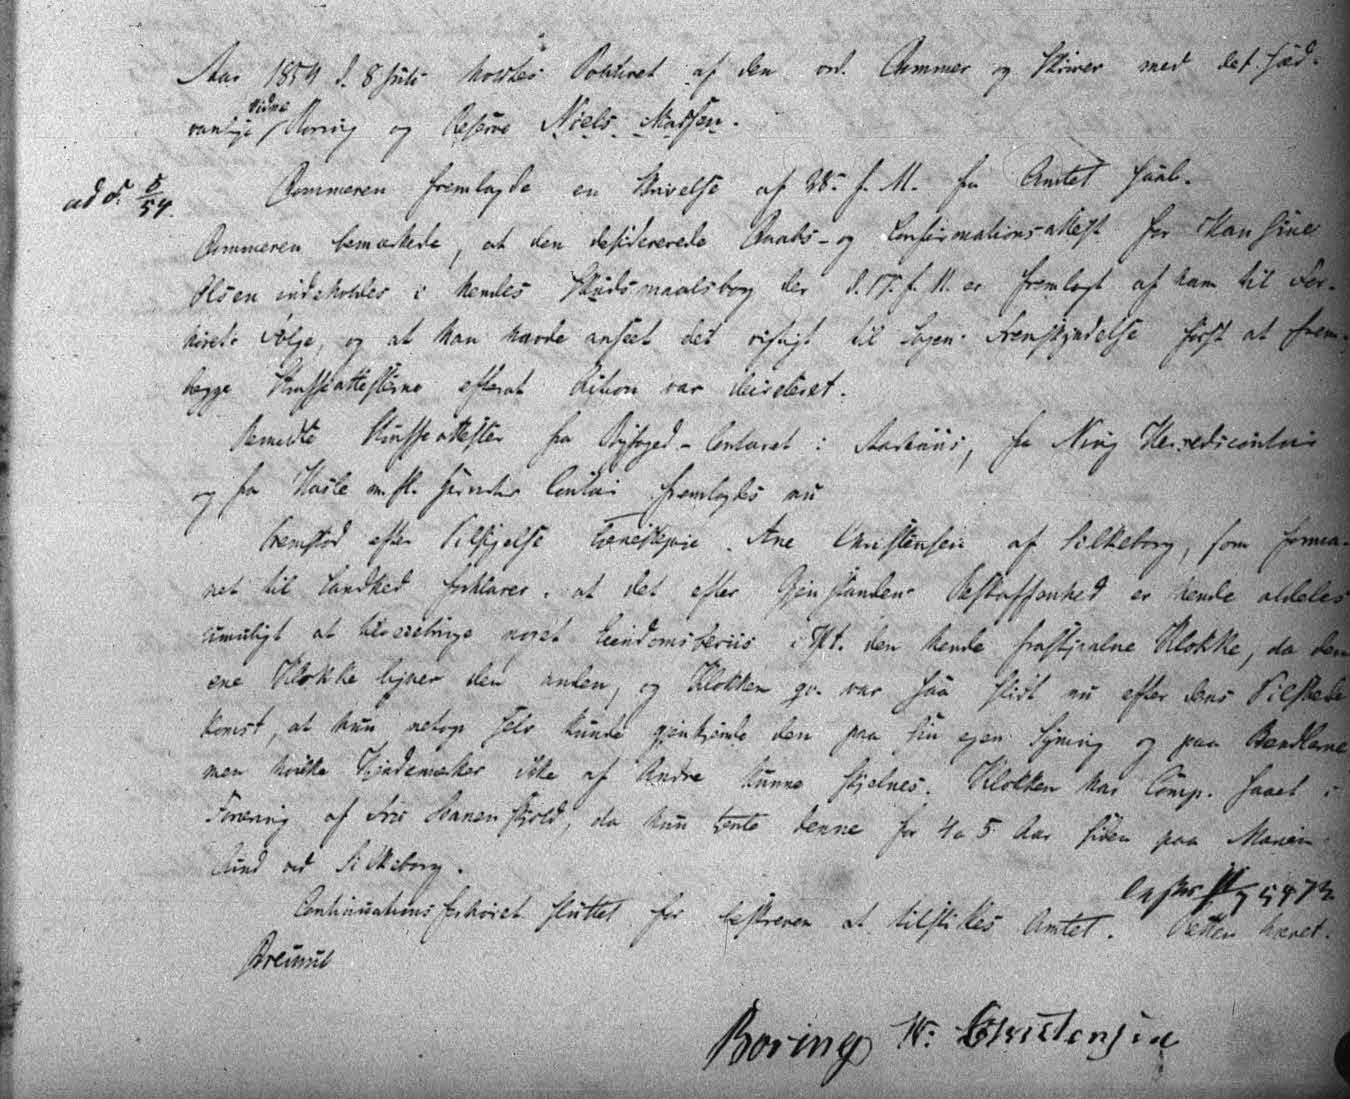 Aar 1854 d. 8 Juli holdtes Politiret af den ord. Dommer og Skriver med det sæd-
vanlige Vidne Boring og Reserve Niels Madsen.
ad d. 5/54.
Dommeren fremlagde en Skrivelse af 28. f. M. fra Amtet saal.
Dommeren bemærkede, at den desidererede Daabs- og Confirmationsattest for Hansine
Olsen indeholdes i hendes Skudsmaalsbog der d. 17. f. M. er fremlagt af ham til For-
hørets Følge, og at han havde anseet det rigtigt til Sagens Fremskyndelse først at frem-
lægge Straffeattesterne efterat Action var decreteret.
Bemeldte Straffeattester fra Byfoged-Contoret i Aarhuus, fra Ning Herredscontoir
og fra Hasle m.fl. Herreders Contoir fremlagdes nu
Fremstod efter Tilsigelse Tjenestepige Ane Christensen af Silkeborg, som forma-
net til Sandhed forklarer, at det efter Gjenstandens Beskaffenhed er hende aldeles
umuligt at tilveiebringe noget Eiendomsbeviis i Hst. den hende frastjaalne Klokke, da den
ene Klokke ligner den anden, og Klokken qv. var saa slidt nu efter dens Tilstede
komst, at hun netop selv kunde gjenkjende den paa sin egen Syning og paa Bændlerne
men hvilke Kjendemærker ikke af Andre kunne skjelnes. Klokken har Comp. faaet i
Foræring af Fru Svanenskjold, da hun tjente denne for 4 a 5 Aar siden paa Marien
lund ved Silkeborg.
Continuationsforhøret sluttet for beskreven at tilstilles Amtet. Retten hævet.
Breinub
Boring N. Christensen